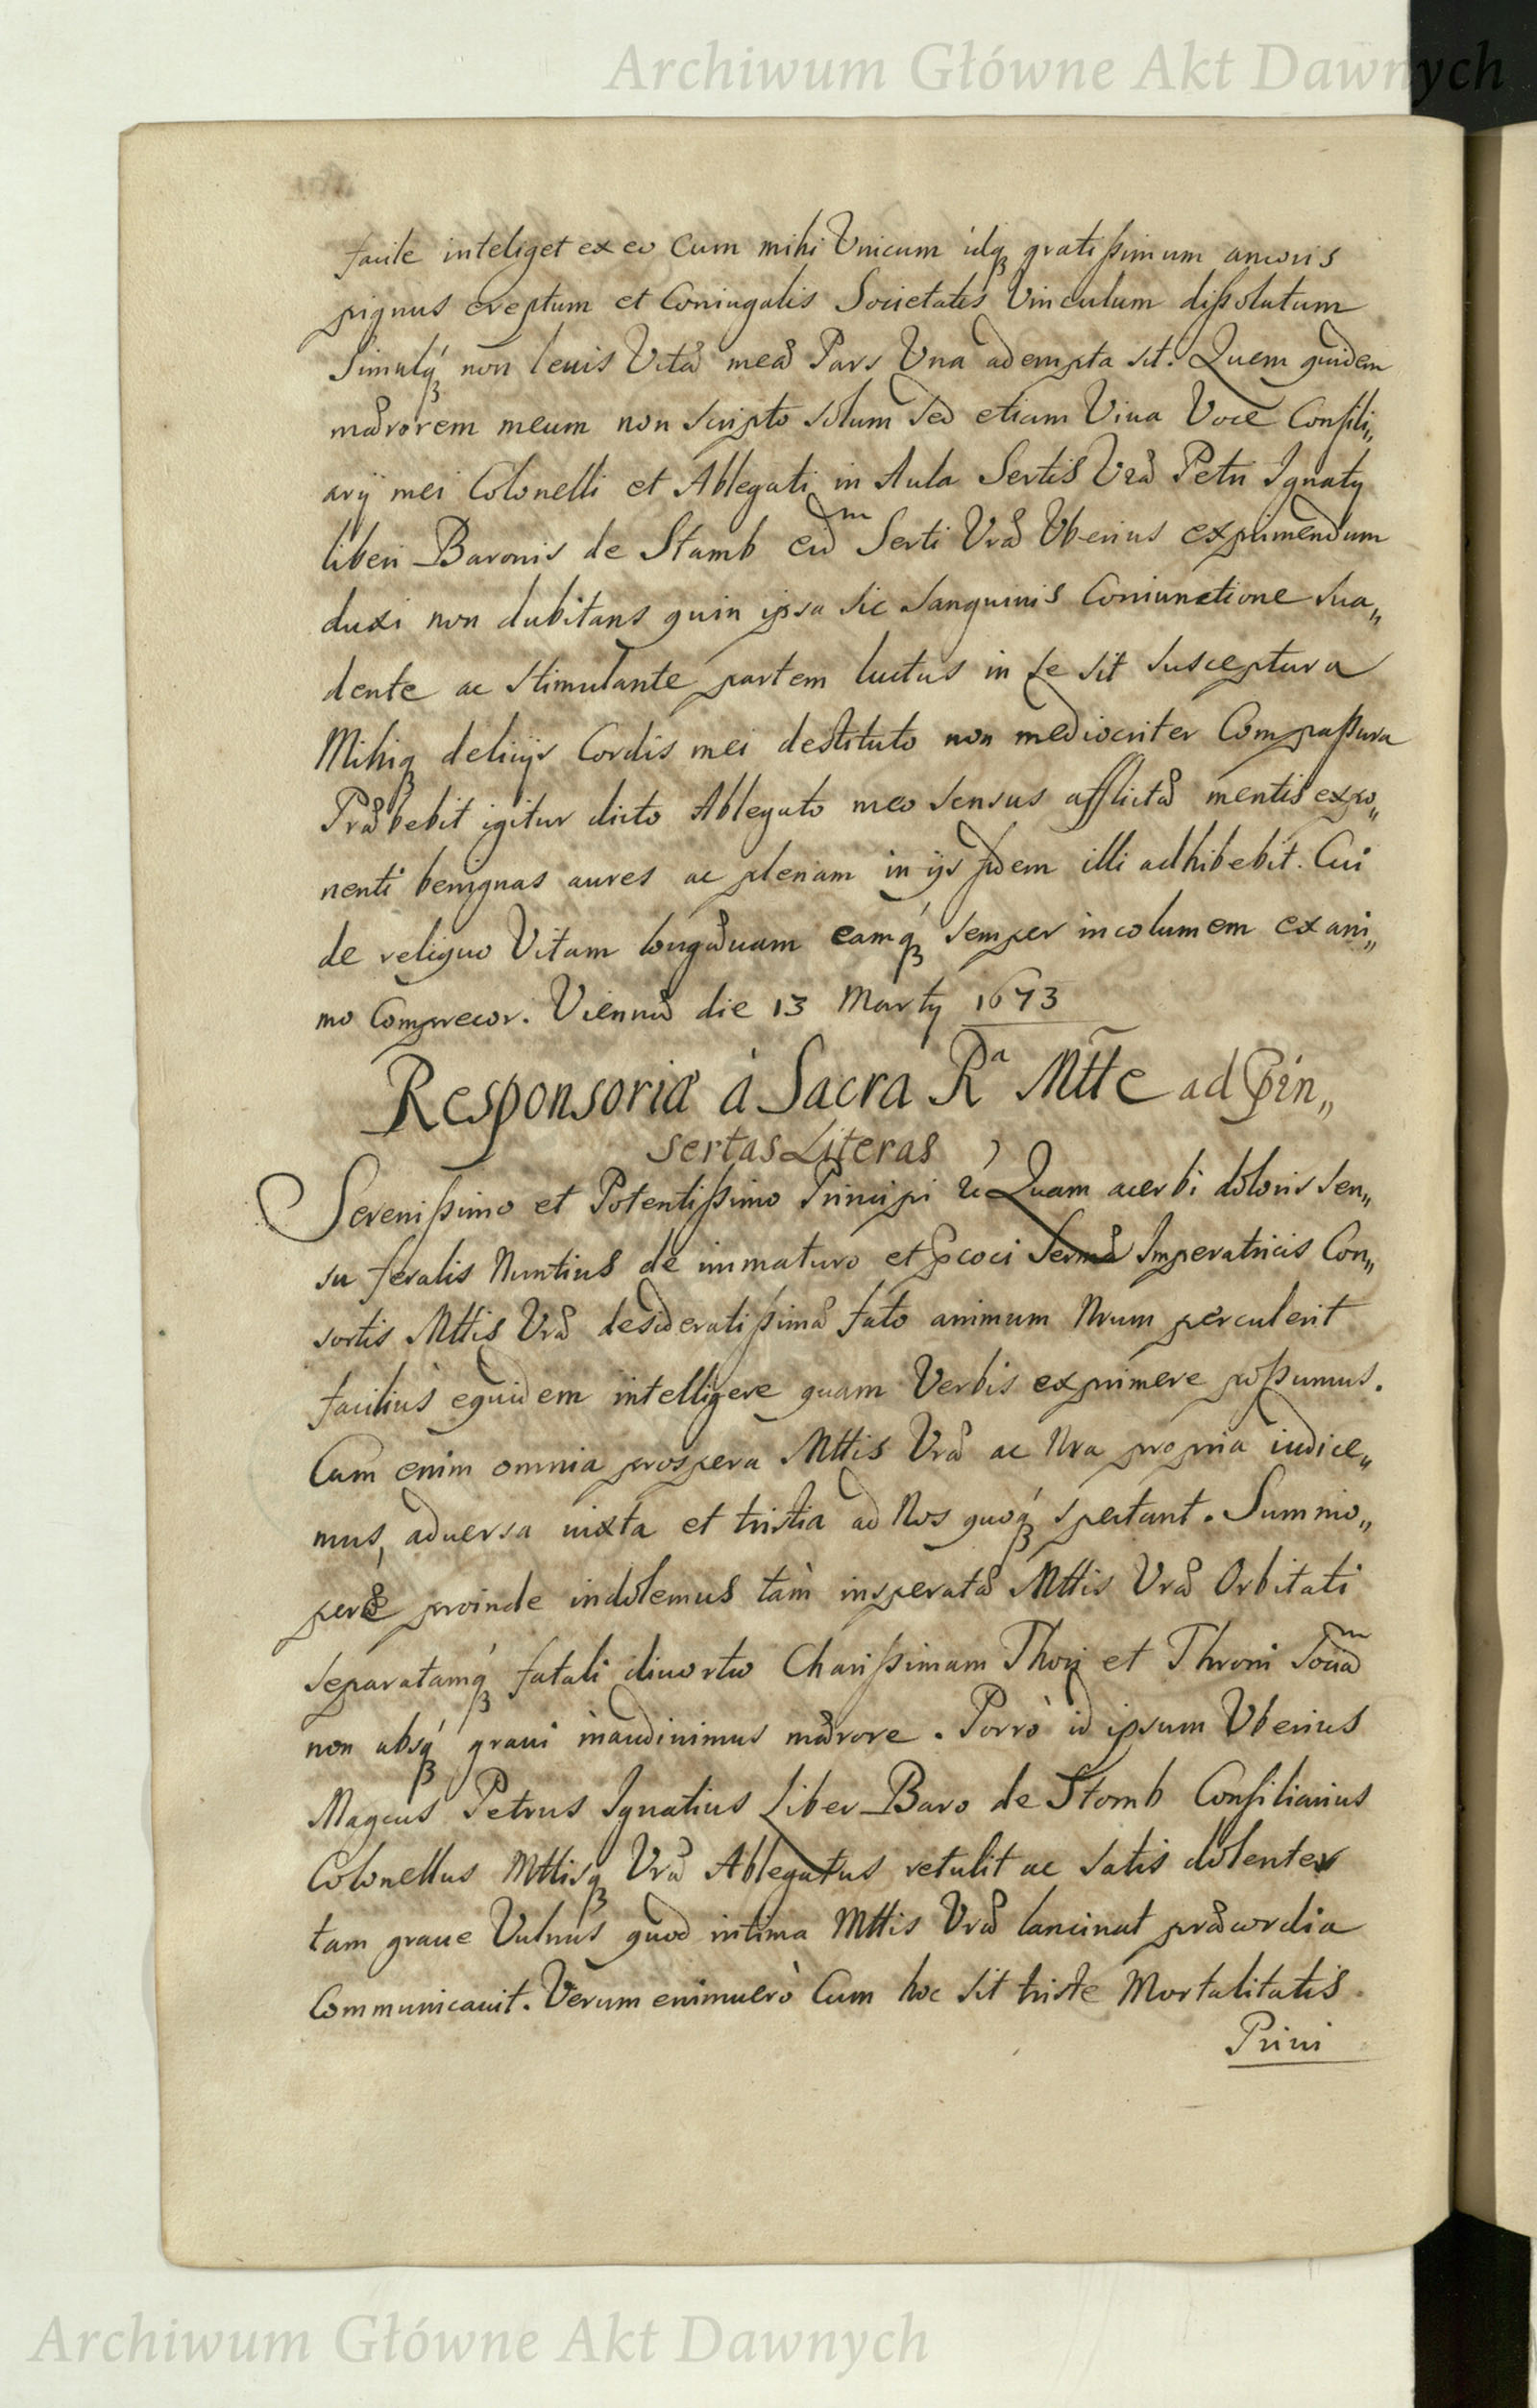 Archiwum Główne Akt Dawnych
facile inteliget ex eo Cum mihi Vnicum idq; gratissimum amoris
pignus ereptum et Coniugalis Societatis Vinculum dissolutum
Simulq; non leuis Vitæ meæ Pars Vna adempta sit. Quem quidem
mærorem meum non scripto solum sed etiam Viua Voce Consili„
arÿ mei Colonelli et Ablegati in Aula Sertis Vræ Petri Ignatÿ
liberi Baronis de Stamb eidm Serti Vræ Vberius exprimendum
duxi non dubitans quin ipsa sic sanguinis Coniunctione sua„
dente ac stimulante partem luctus in se sit susceptura
Mihiq; delicÿs Cordis mei destituto non mediocriter Compassura
Præbebit igitur dicto Ablegato meo sensus afflictæ mentis expo„
nenti benignas aures ac plenam in ijs fidem illi adhibebit. Cui
de reliquo Vitam longæuam eamq; semper incolumem ex ani„
mo Comprecor. Viennæ die 13 Martÿ 1673
Responsoriæ à Sacra Ra Mtte ad Pin„
sertas Literas
Serenissimo et Potentissimo Principi &c Quam acerbi doloris sen„
su feralis Nuntius de immaturo et pcoci Sermæ Imperatricis Con„
sortis Mttis Vræ desideratissimæ fato animum Nrum perculerit
facilius equidem intelligere quam Verbis exprimere possumus.
Cum enim omnia prospera Mttis Vræ ac Nra propria iudice„
mus, aduersa iuxta et tristia ad Nos quoq; spectant. Summo„
pere proinde indolemus tàm insperatæ Mttis Vræ Orbitati
separatamq; fatali diuortio Charissimam Thori et Throni Sociam
non absq; graui inaudiuimus mærore. Porrò id ipsum Vberius
Magcus Petrus Ignatius Liber Baro de Stomb Consiliarius
Colonellus Mttisq; Vræ Ablegatus retulit ac satis dolenter
tam graue Vulnus quod intima Mttis Vræ lancinat præcordia
Communicauit. Verum enimuerò Cum hoc sit triste Mortalitatis
Priui
Archiwum Główne Akt Dawnych